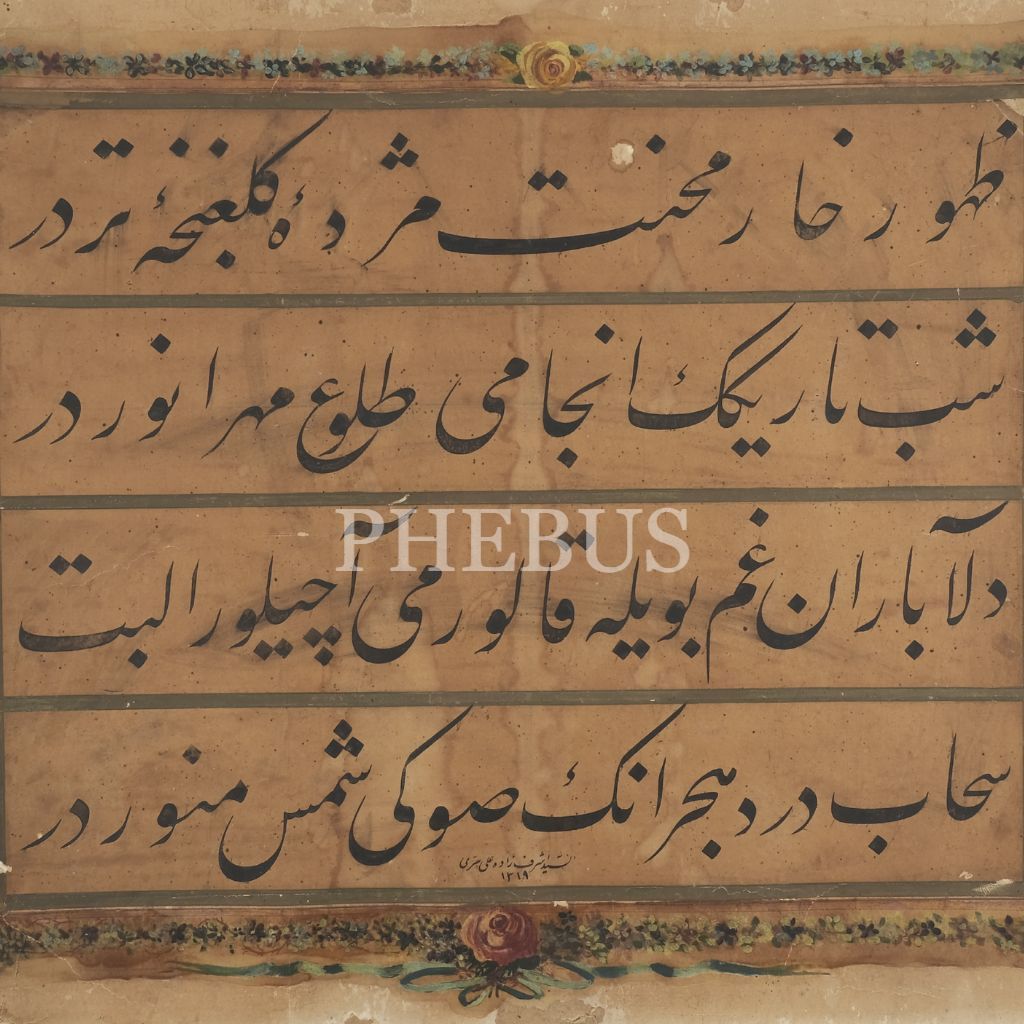 ظهور خار محنت مژدهٔ گلغنچهٔ تردر
شب تاریكك انجامی طلوع مهر انوردر
دلا باران غم بویله قالورمی آچیلور البت
سحاب درد هجرانك صوكی شمس منوردر
السید اشرف زاده علی سری
١٣١٩
PHEBUS